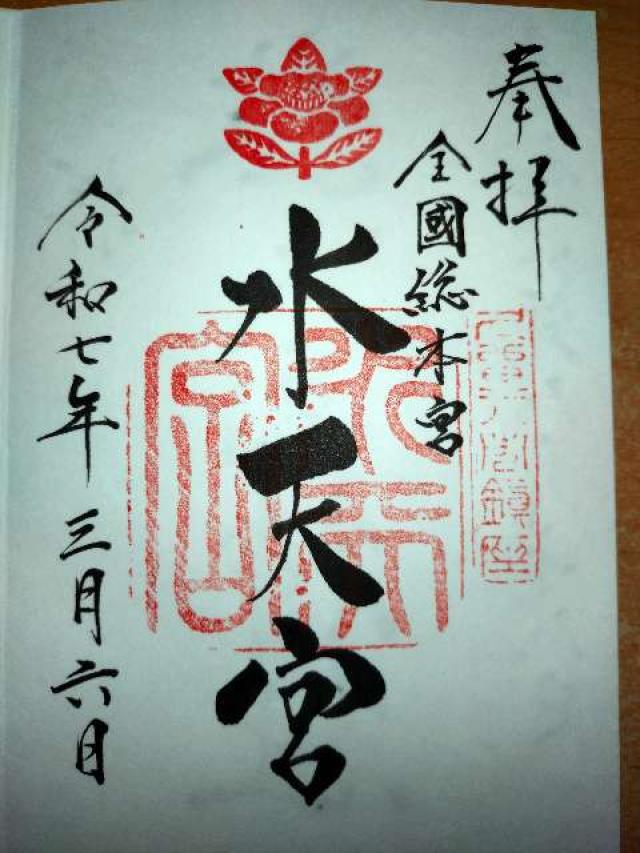 奉拝
全國総本宮
水天宮
令和七年三月六日
水天宮